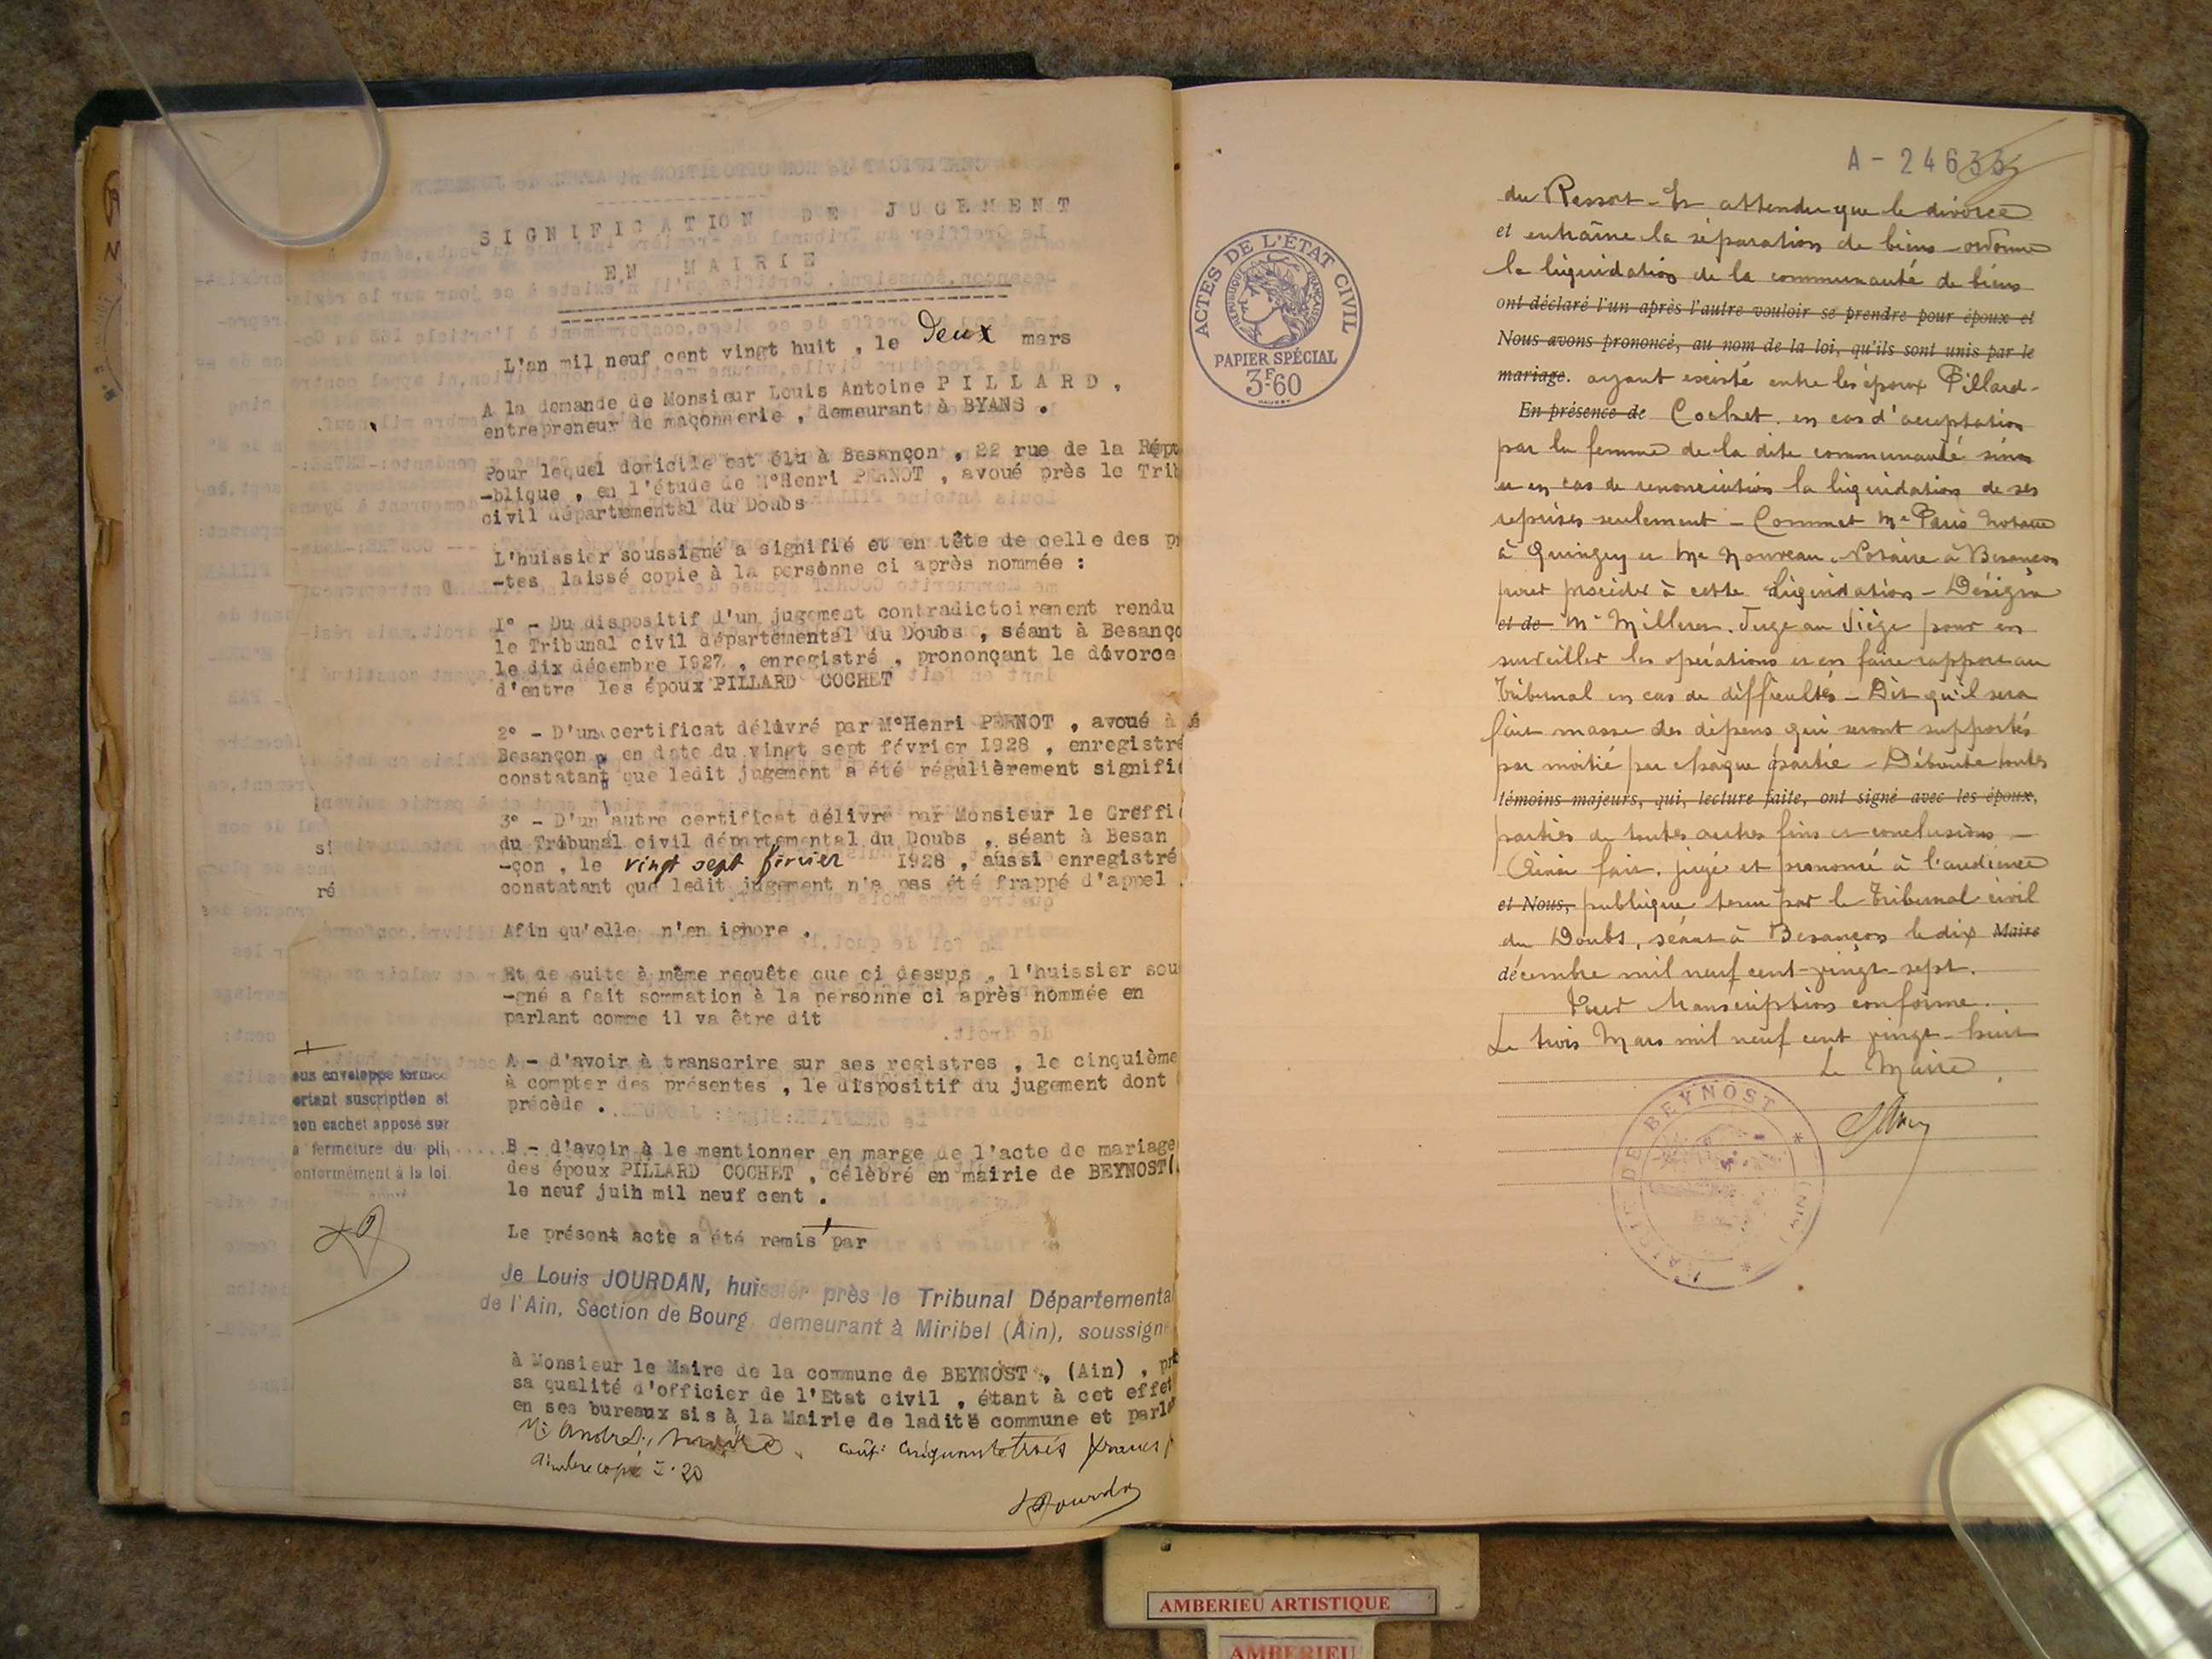 SIGNIFICATION DE JUGEMENT
EN MAIRIE
L'an mil neuf cent vingt huit , le Deux mars
A la demande de Monsieur Louis Antoine PILLARD ,
entrepreneur de maçonnerie , demeurant à BYANS .
Pour lequel domicile est élu à Besançon , 22 rue de la Répu
-blique , en l'étude de M°Henri PERNOT , avoué près le Trib
civil départemental du Doubs
L'huissier soussigné a signifié et en tête de celle des pr
-tes laissé copie à la personne ci après nommée :
1° - Du dispositif d'un jugement contradictoirement rendu
le Tribunal civil départemental du Doubs , séant à Besanço
le dix décembre 1927 , enregistré , prononçant le divorce
d'entre les époux PILLARD COCHET
2° - D'un certificat délivré par M°Henri PERNOT , avoué à
Besançon , en date du vingt sept février 1928 , enregistré
constatant que ledit jugement a été régulièrement signifié
3° - D'un autre certificat délivré par Monsieur le Greffi
du Tribunal civil départemental du Doubs , séant à Besan
-çon , le vingt sept février 1928 , aussi enregistré
constatant que ledit jugement n'a pas été frappé d'appel .
Afin qu'elle n'en ignore .
Et de suite à même requête que ci dessus , l'huissier sou
-gné a fait sommation à la personne ci après nommée en
parlant comme il va être dit
A - d'avoir à transcrire sur ses registres , le cinquième
à compter des présentes , le dispositif du jugement dont
précède .
B - d'avoir à le mentionner en marge de l'acte de mariage
des époux PILLARD COCHET , célèbré en mairie de BEYNOST(
le neuf juin mil neuf cent .
Le présent acte a été remis par
ous enveloppe fermée
ortant suscription et
son cachet apposé sur
a fermeture du pli,
onformément à la loi.
Je Louis JOURDAN, huissier près le Tribunal Départemental
de l'Ain, Section de Bourg demeurant à Miribel (Ain), soussigné
à Monsieur le Maire de la commune de BEYNOST , (Ain) , pr
sa qualité d'officier de l'Etat civil , étant à cet effet
en ses bureaux sis à la Mairie de ladite commune et parla
coût: cinquante trois francs
copie 20
Jourdan
A - 24633
ACTES DE L'ÉTAT CIVIL
RÉPUBLIQUE FRANÇAISE
PAPIER SPÉCIAL
3F.60
du Ressort - Et attendu que le divorce
et entraîne la séparation de biens - ordonne
la liquidation de la communauté de biens
ont déclaré l'un après l'autre vouloir se prendre pour époux et
Nous avons prononcé, au nom de la loi, qu'ils sont unis par le
mariage. ayant existé entre les époux Pillard-
En présence de Cochet. en cas d'acceptation
par la femme de la dite communauté sinon
et en cas de renonciation la liquidation de ses
reprises seulement - Commet Me Paris Notaire
à Quingey et Me Nouveau. Notaire à Besançon
pour procéder à cette liquidation - Désigne
et de Mr Milleret. Juge au Siège pour en
surveiller les opérations et en faire rapport au
Tribunal en cas de difficultés - Dit qu'il sera
fait masse des dépens qui seront supportés
par moitié par chaque partie - Déboute toutes
témoins majeurs, qui, lecture faite, ont signé avec les époux,
parties de toutes autres fins et conclusions -
Ainsi fait. jugé et prononcé à l'audience
et Nous, publique tenue par le Tribunal civil
du Doubs, séant à Besançon le dix Maire
décembre mil neuf cent-vingt-sept.
Pour transcription conforme.
Le trois Mars mil neuf cent vingt-huit
Le Maire
MAIRIE DE BEYNOST * (AIN) *
AMBERIEU ARTISTIQUE
AMBERIEU